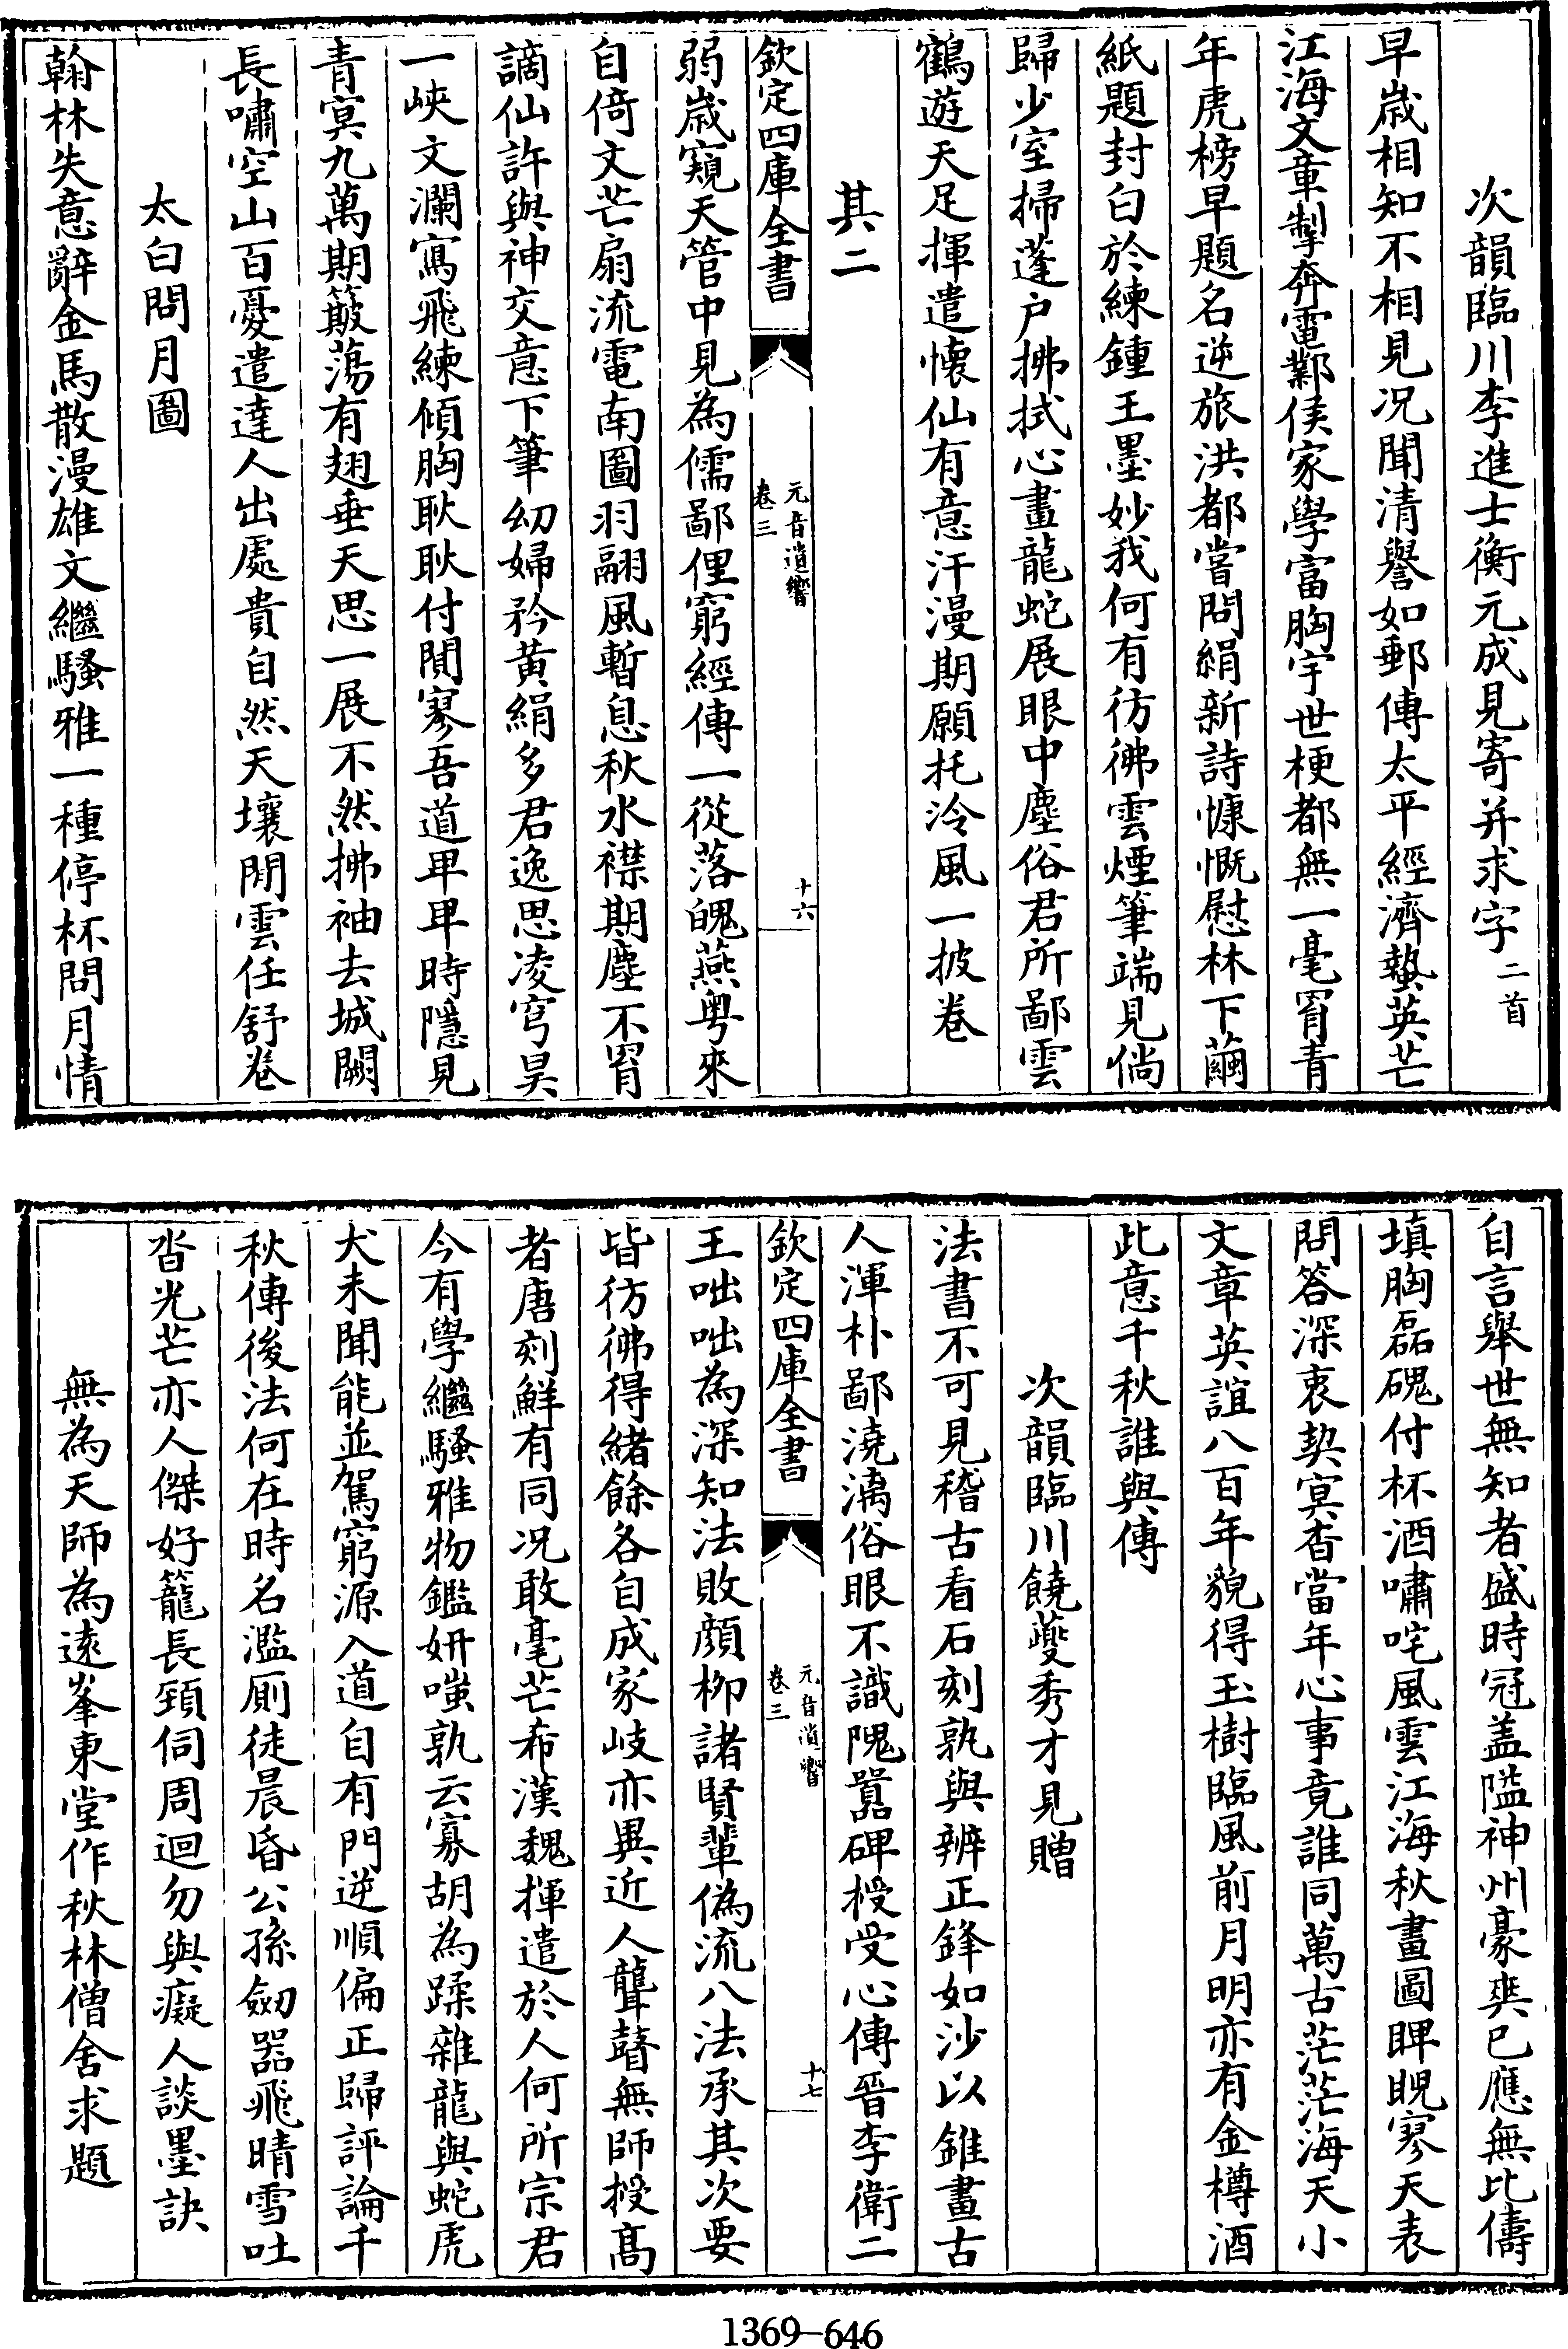 次韻臨川李進士衡元成見寄并求字二首
早歳相知不相見况聞清譽如郵傳太平經濟蟄英芒
江海文章掣奔電鄴侯家學富胸宇世梗都無一毫罥青
年虎榜早題名逆旅洪都嘗問絹新詩慷慨慰林下繭
紙題封白於練鍾王墨妙我何有彷彿雲煙筆端見倘
歸少室掃蓬户拂拭心畫龍蛇展眼中塵俗君所鄙雲
鶴遊天足揮遣懷仙有意汗漫期願托泠風一披卷
其二
欽定四庫全書
元音遺響
卷三
十六
弱歳窺天管中見為儒鄙俚窮經傳一從落魄燕粤來
自倚文芒扇流電南圖羽翮風暫息秋水襟期塵不罥
謫仙許與神交意下筆幼婦矜黄絹多君逸思凌穹昊
一峽文瀾寫飛練傾胸耿耿付閴寥吾道卑卑時隱見
青冥九萬期簸蕩有翅垂天思一展不然拂袖去城闕
長嘯空山百憂遣達人出處貴自然天壤閒雲任舒卷
太白問月圖
翰林失意辭金馬散漫雄文繼騷雅一種停杯問月情
自言舉世無知者盛時冠盖隘神州豪爽已應無比儔
填胸磊磈付杯酒嘯咤風雲江海秋畫圖睥睨寥天表
問答深衷契冥杳當年心事竟誰同萬古茫茫海天小
文章英誼八百年貌得玉樹臨風前月明亦有金樽酒
此意千秋誰與傳
次韻臨川饒蘷秀才見贈
法書不可見稽古看石刻孰與辨正鋒如沙以錐畫古
人渾朴鄙澆漓俗眼不識隗囂碑授受心傳晉李衛二
欽定四庫全書
元音遺響
卷三
十七
王咄咄為深知法敗顔栁諸賢輩偽流八法承其次要
皆彷彿得緒餘各自成家岐亦異近人聾瞽無師授髙
者唐刻鮮有同况敢毫芒希漢魏揮遣於人何所宗君
今有學繼騷雅物鑑妍嗤孰云寡胡為蹂雜龍與蛇虎
犬未聞能並駕窮源入道自有門逆順偏正歸評論千
秋傳後法何在時名濫厠徒晨昏公孫劒器飛晴雪吐
沓光芒亦人傑好籠長頸伺周迴勿與癡人談墨訣
無為天師為逺峯東堂作秋林僧舍求題
1369—646